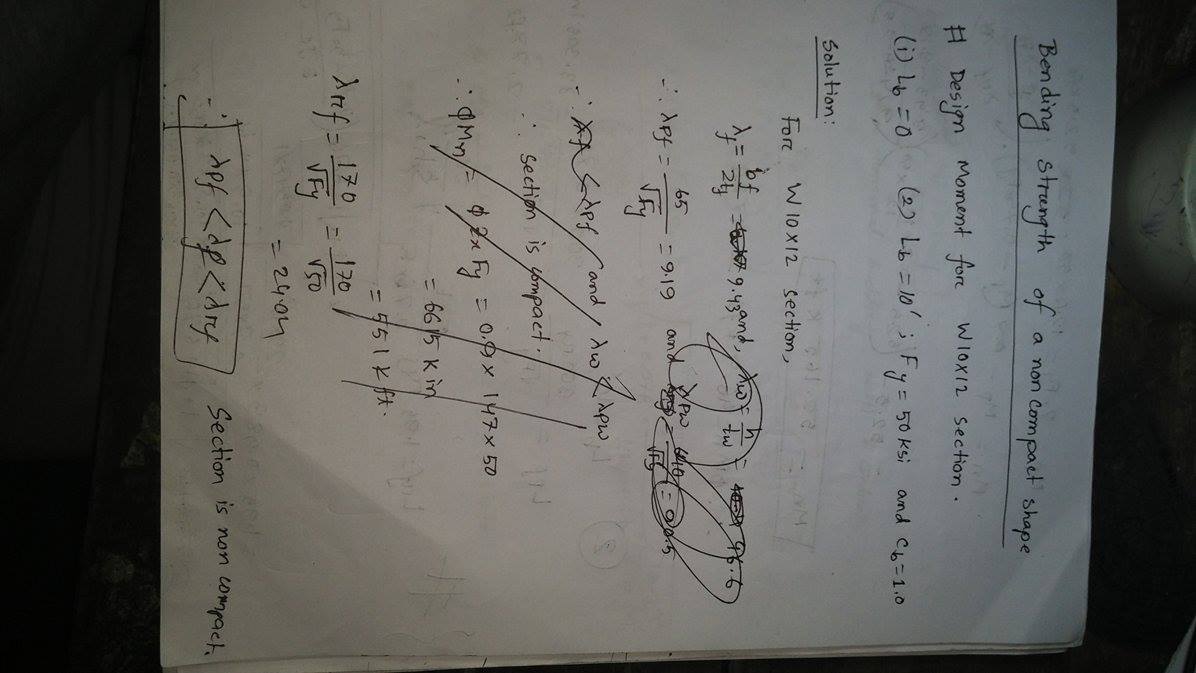 Bending strength of a noncompact shape
# Design Moment forc W10x12 section.
(i) Lb = 0 (2) Lb = 10' ; Fy = 50 ksi and Cb = 1.0
Solution:
Forc W10x12 section,
λf = bf/2tf = 9.43 and, λw = h/tw = 46.6
∴ λpf = 65/√Fy = 9.19 and λpw = 640/√Fy = 90.5
∴ λf < λpf and, λw < λpw
∴ section is compact.
∴ ϕMn = ϕ Zx Fy = 0.9 x 147 x 50
= 6615 k in
= 551 k ft.
λrf = 170/√Fy = 170/√50
= 24.04
∴ λpf < λf < λrf Section is non compact.